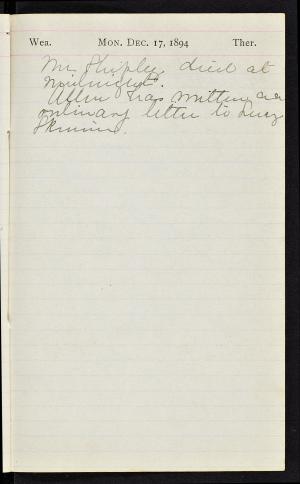 Wea. Mon. Dec. 17, 1894 Ther.
Mr. Shipley died at
midnight.
Allen has written an
ordinary letter to Lucy